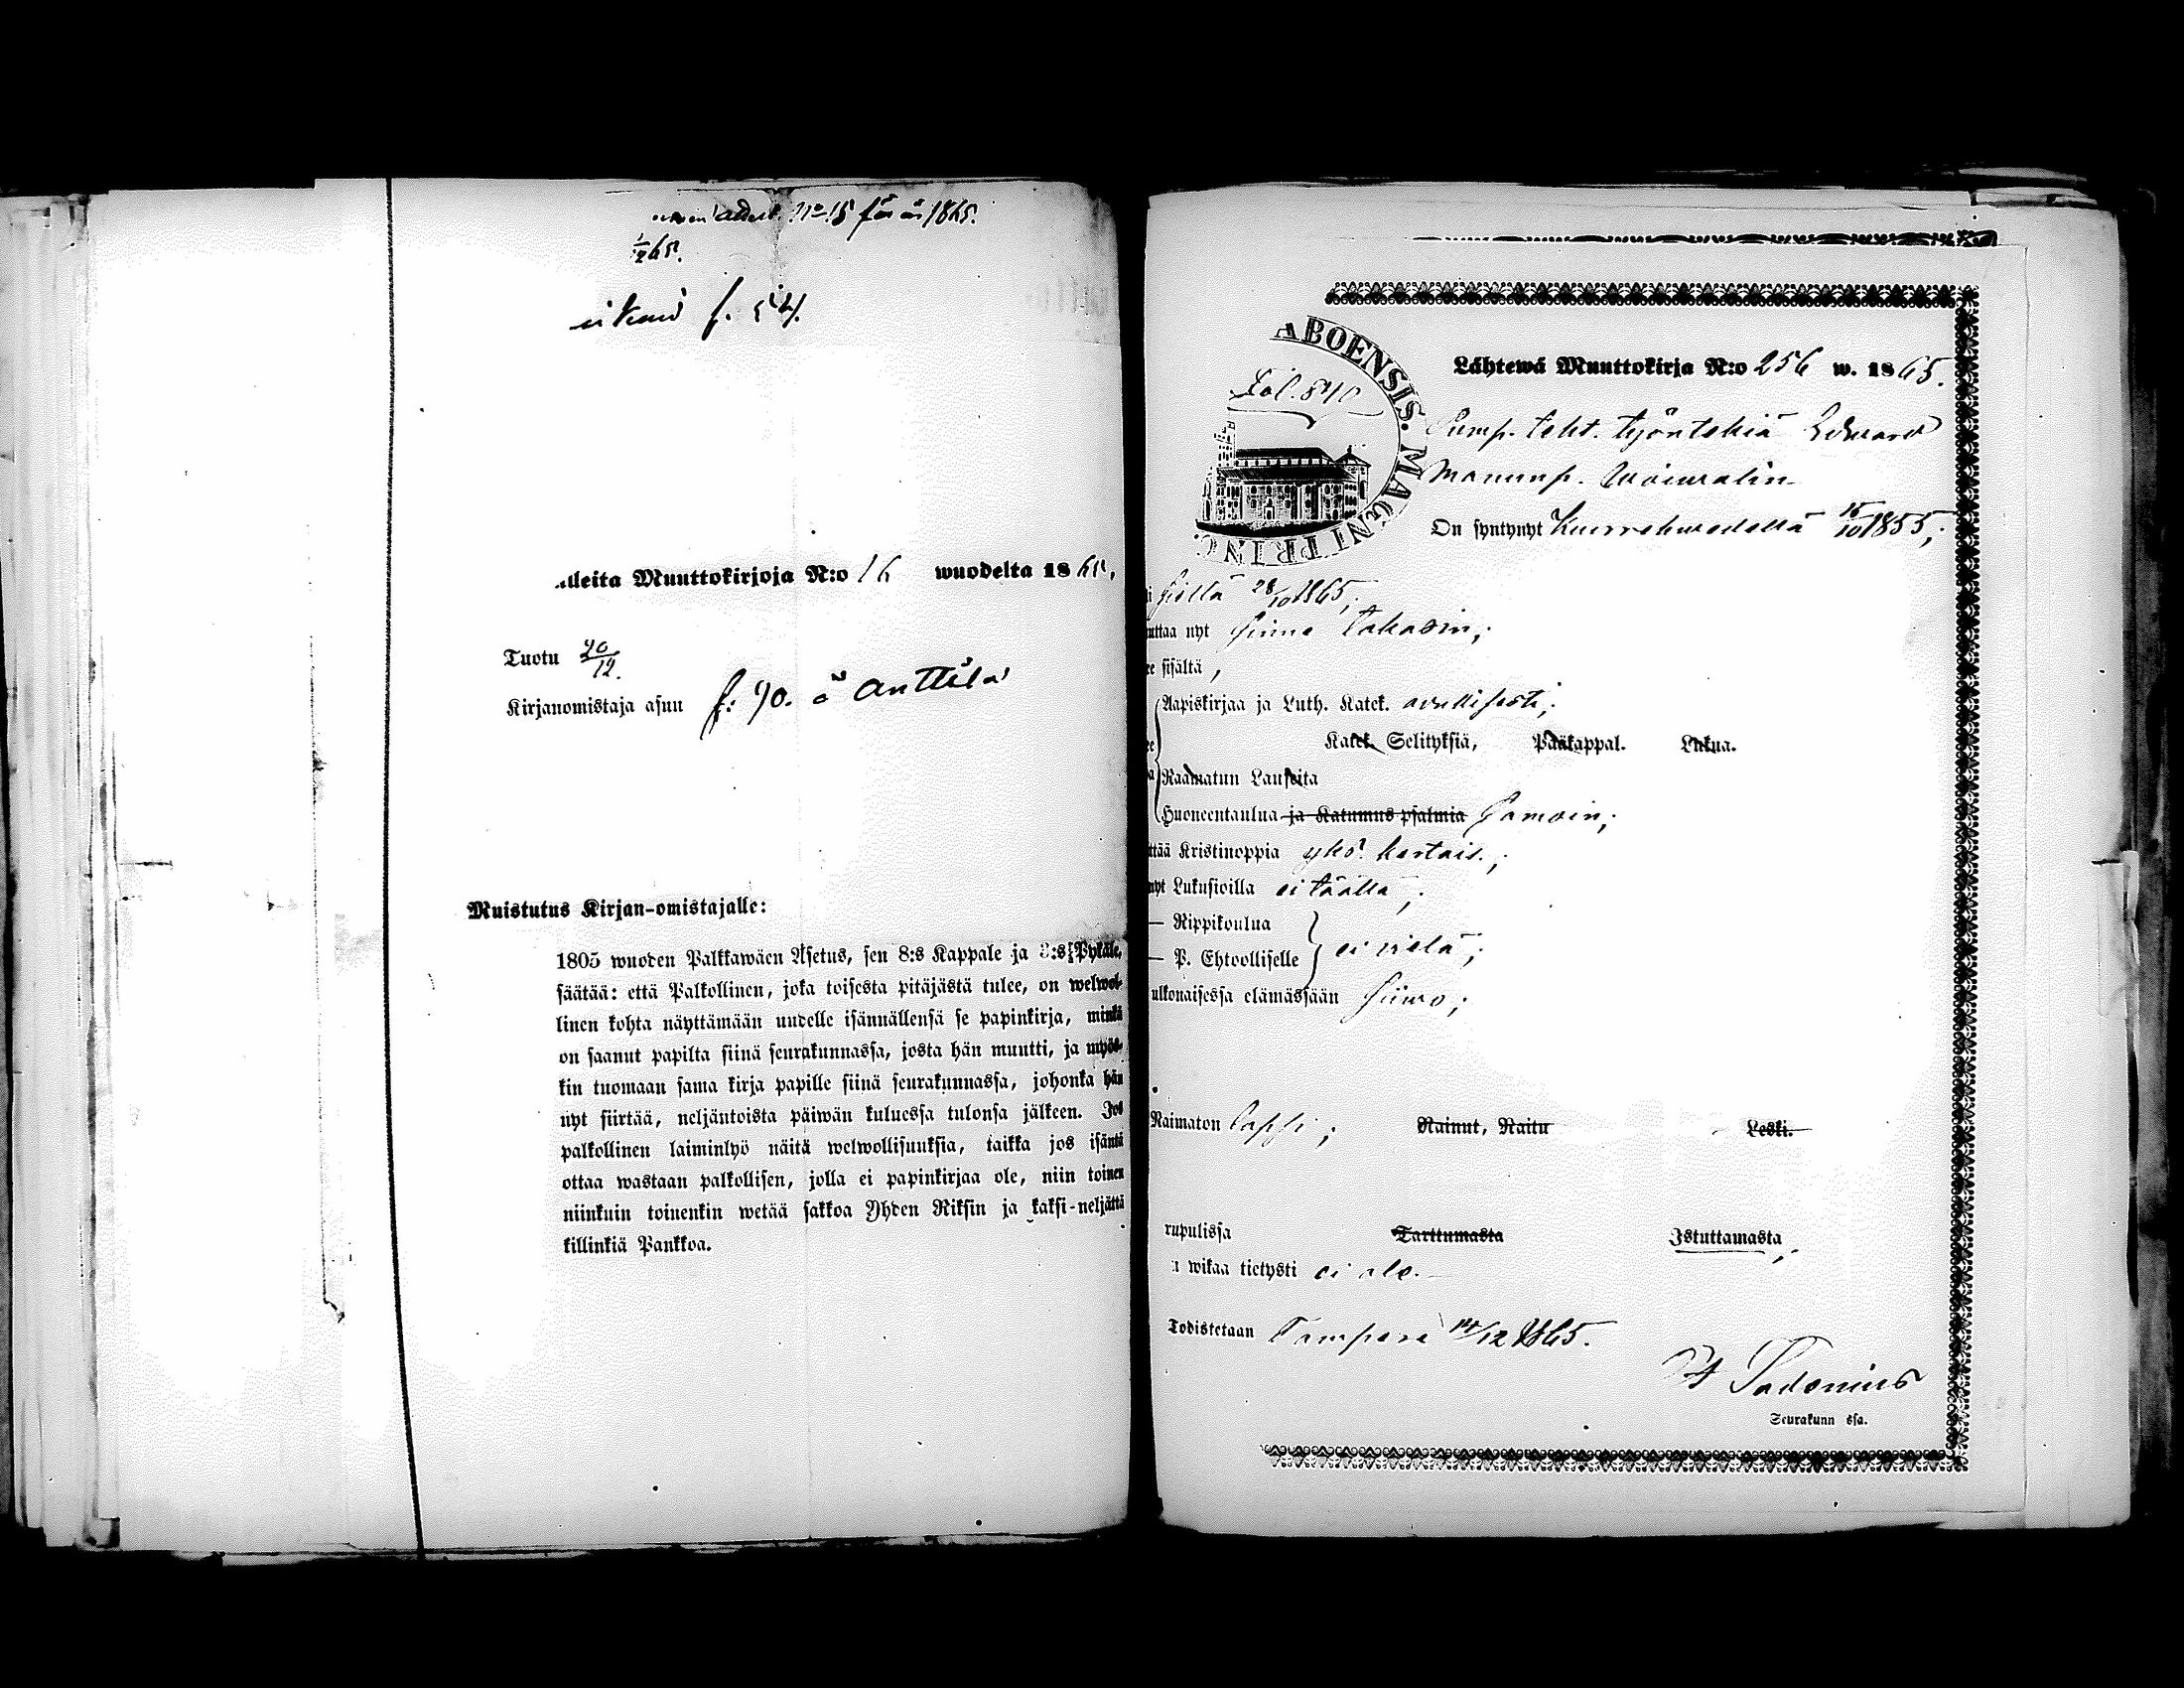 N:o 15 för år 1865.
1/2 65.
f. 54.
Muuttokirjoja N:o 16 wuodelta 1865,
Tuotu 20/12.
Kirjanomistaja asuu f: 90. å Anttila
Muistutus Kirjan-omistajalle:
1805 wuoden Palkkawäen Asetus, sen 8:s Kappale ja 3:s Pykäle,
säätää: että Palkollinen, joka toisesta pitäjästä tulee, on welwol-
linen kohta näyttämään uudelle isännällensä se papinkirja, minkä
on saanut papilta siinä seurakunnassa, josta hän muutti, ja myös-
kin tuomaan sama kirja papille siinä seurakunnassa, johonka hän
nyt siirtää, neljäntoista päiwän kuluessa tulonsa jälkeen. Jos
palkollinen laiminlyö näitä welwollisuuksia, taikka jos isäntä
ottaa wastaan palkollisen, jolla ei papinkirjaa ole, niin toinen
niinkuin toinenkin wetää sakkoa Yhden Riksin ja kaksi-neljättä
killinkiä Pankkoa.
ABOENSIS. MAGNI PRINC.
Fol. 840
Lähtewä Muuttokirja N:o 256 w. 1865.
Pump. teht. työntekiä Edward
Manunp.
On syntynyt Kuurehwedellä 15/10 1855;
sieltä 28/10 1865;
uttaa nyt sinne takasin;
sisältä,
Aapiskirjaa ja Luth. Katek. awullisesti;
Katek. Selityksiä, Pääkappal. Lukua.
Raamatun Lauseita
Huoneentaulua ja Katumus psalmia Samoin;
ttää Kristinoppia yks. kertais.;
nyt Lukusioilla ei täällä;
— Rippikoulua
— P. Ehtoolliselle ei vielä;
ulkonaisessa elämässään Siiwo;
Naimaton lapsi; Nainut, Naitu Leski.
rupulissa Tarttumasta Istuttamasta;
wikaa tietysti ei ole.
Todistetaan Tampere 14/12 1865.
Tadenius
Seurakunn ssa.